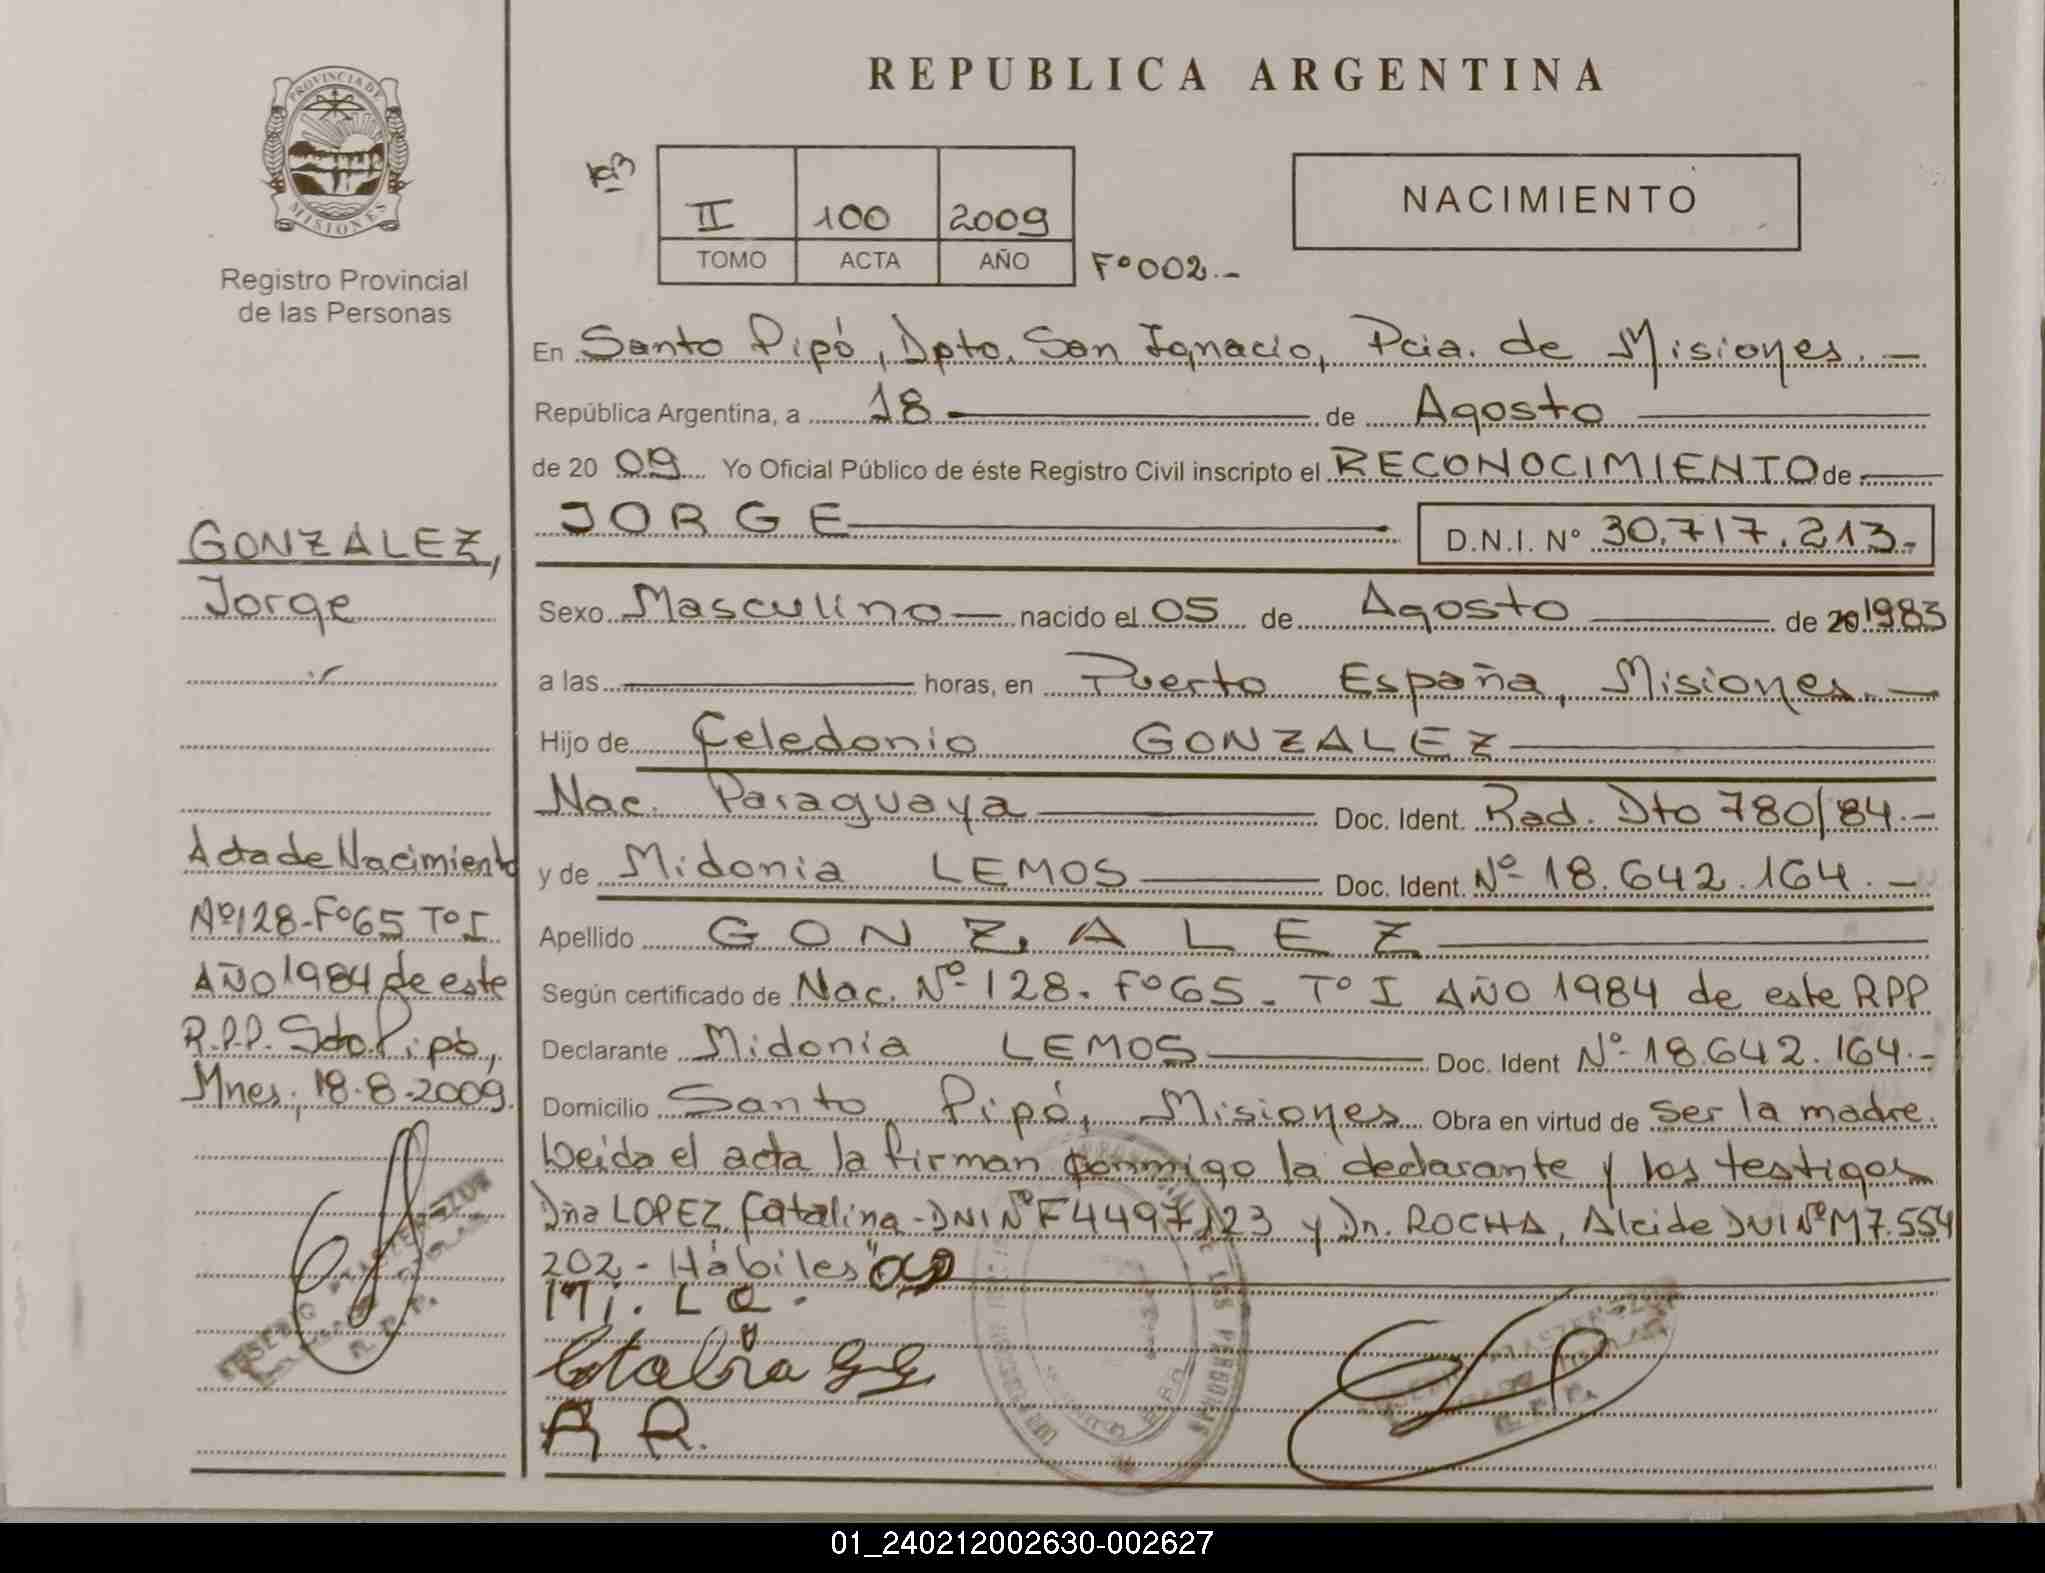 REPUBLICA ARGENTINA
PROVINCIA DE
MISIONES
Registro Provincial
de las Personas
II 100 2009
TOMO ACTA AÑO
Fº002.-
NACIMIENTO
En Santo Pipó, Dpto. San Ignacio, Pcia. de Misiones.-
República Argentina, a 18 de Agosto
de 2009 Yo Oficial Público de éste Registro Civil inscripto el RECONOCIMIENTO de
JORGE D.N.I. Nº 30.717.213.-
Sexo Masculino - nacido el 05 de Agosto de 20 1983
a las horas, en Puerto España, Misiones.-
Hijo de Celedonio GONZALEZ
Nac. Paraguaya Doc. Ident. Rad. Dto 780/84.-
y de Midonia LEMOS Doc. Ident. Nº 18.642.164.-
Apellido GONZALEZ
Según certificado de Nac. Nº 128. Fº65. Tº I AÑO 1984 de este RPP
Declarante Midonia LEMOS Doc. Ident Nº 18.642.164.-
Domicilio Santo Pipó, Misiones Obra en virtud de ser la madre.
Leida el acta la firman conmigo la declarante y los testigos
Dña LOPEZ, Catalina - DNI Nº F4497123 y Dn. ROCHA, Alcide DNI Nº M7.554
202 - Hábiles
GONZALEZ,
Jorge
Acta de Nacimiento
Nº128-Fº65 Tº I
AÑO 1984 de este
R.P.P. Sto. Pipó,
Mnes, 18-8-2009
A R.
01_240212002630-002627